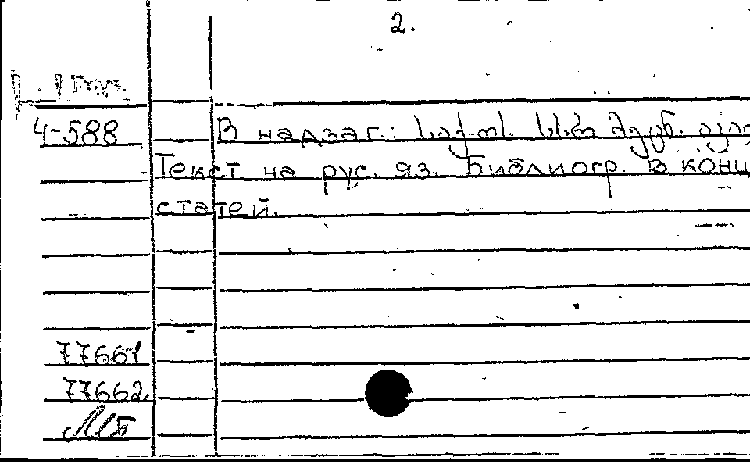 2.
4-588
В надзаг.: საქ. სსრ მეცნ. აკად
Текст на рус. яз. Библиогр. в конц
статей.
77661
77662